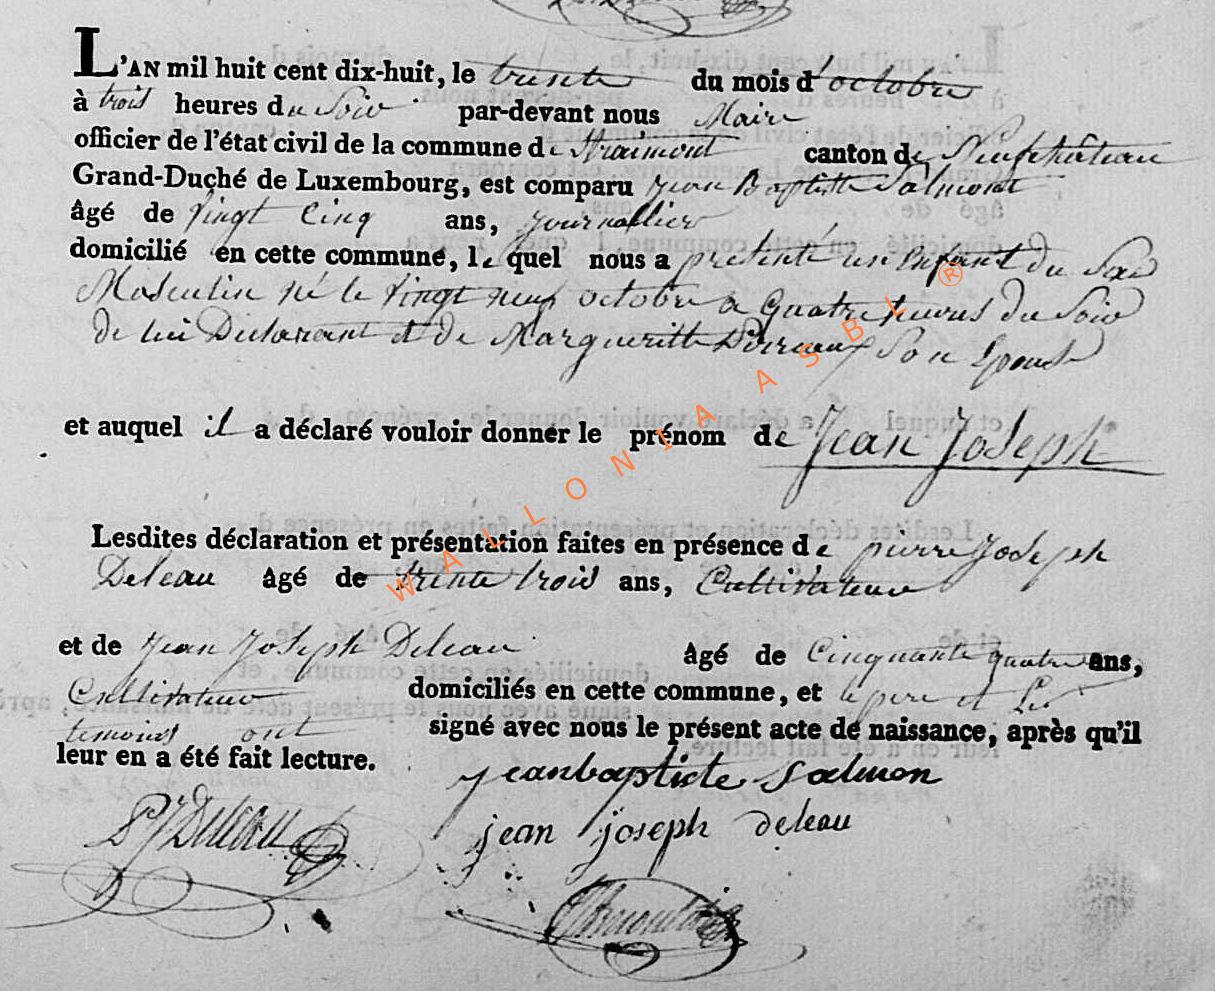 L'AN mil huit cent dix-huit, le trente du mois d'octobre
à trois heures du Soir par-devant nous Maire
officier de l'état civil de la commune de Straimont canton de Neufchâteau
Grand-Duché de Luxembourg, est comparu Jean Baptiste Salmont
âgé de Vingt Cinq ans, journallier
domicilié en cette commune, lequel nous a présenté un Enfant du Sexe
Masculin né le Vingt neuf octobre a Quatre heures du Soir
de lui Declarant et de Margueritte Son Epouse
et auquel il a déclaré vouloir donner le prénom de Jean Joseph
Lesdites déclaration et présentation faites en présence de pierre Joseph
Deleau âgé de trente trois ans, Cultivateur
et de Jean Joseph Deleau âgé de Cinquante quatre ans,
Cultivateur domiciliés en cette commune, et le pere et Les
temoins ont signé avec nous le présent acte de naissance, après qu'il
leur en a été fait lecture.
jeanbaptiste Salmon
PJ Deleau
jean joseph deleau
WALLONIA ASBL ®